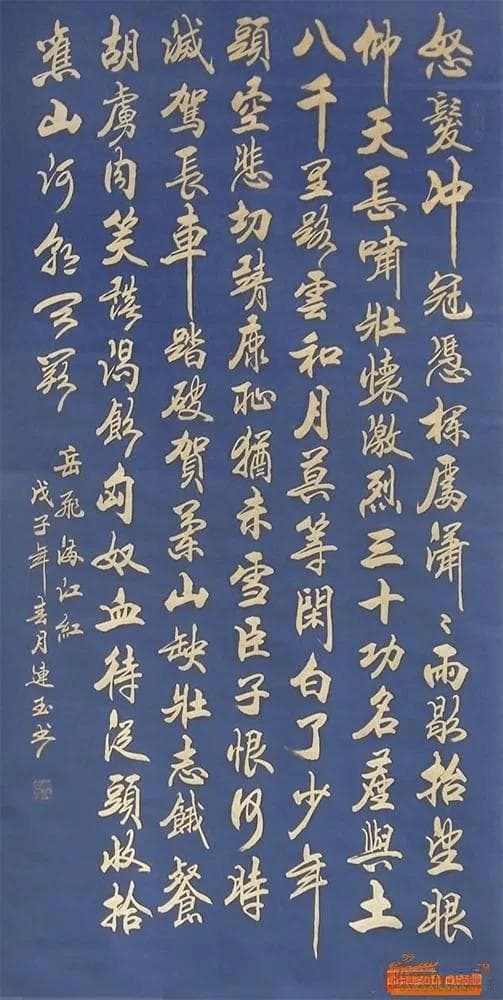 怒髮冲冠憑欄處瀟〻雨歇抬望眼
仰天長嘯壯懷激烈三十功名塵與土
八千里路雲和月莫等閑白了少年
頭空悲切靖康耻猶未雪臣子恨何時
滅駕長車踏破賀蘭山缺壯志餓餐
胡虜肉笑談渴飲匈奴血待從頭收拾
舊山河朝天闕
岳飛滿江紅
戊子年春月連玉书